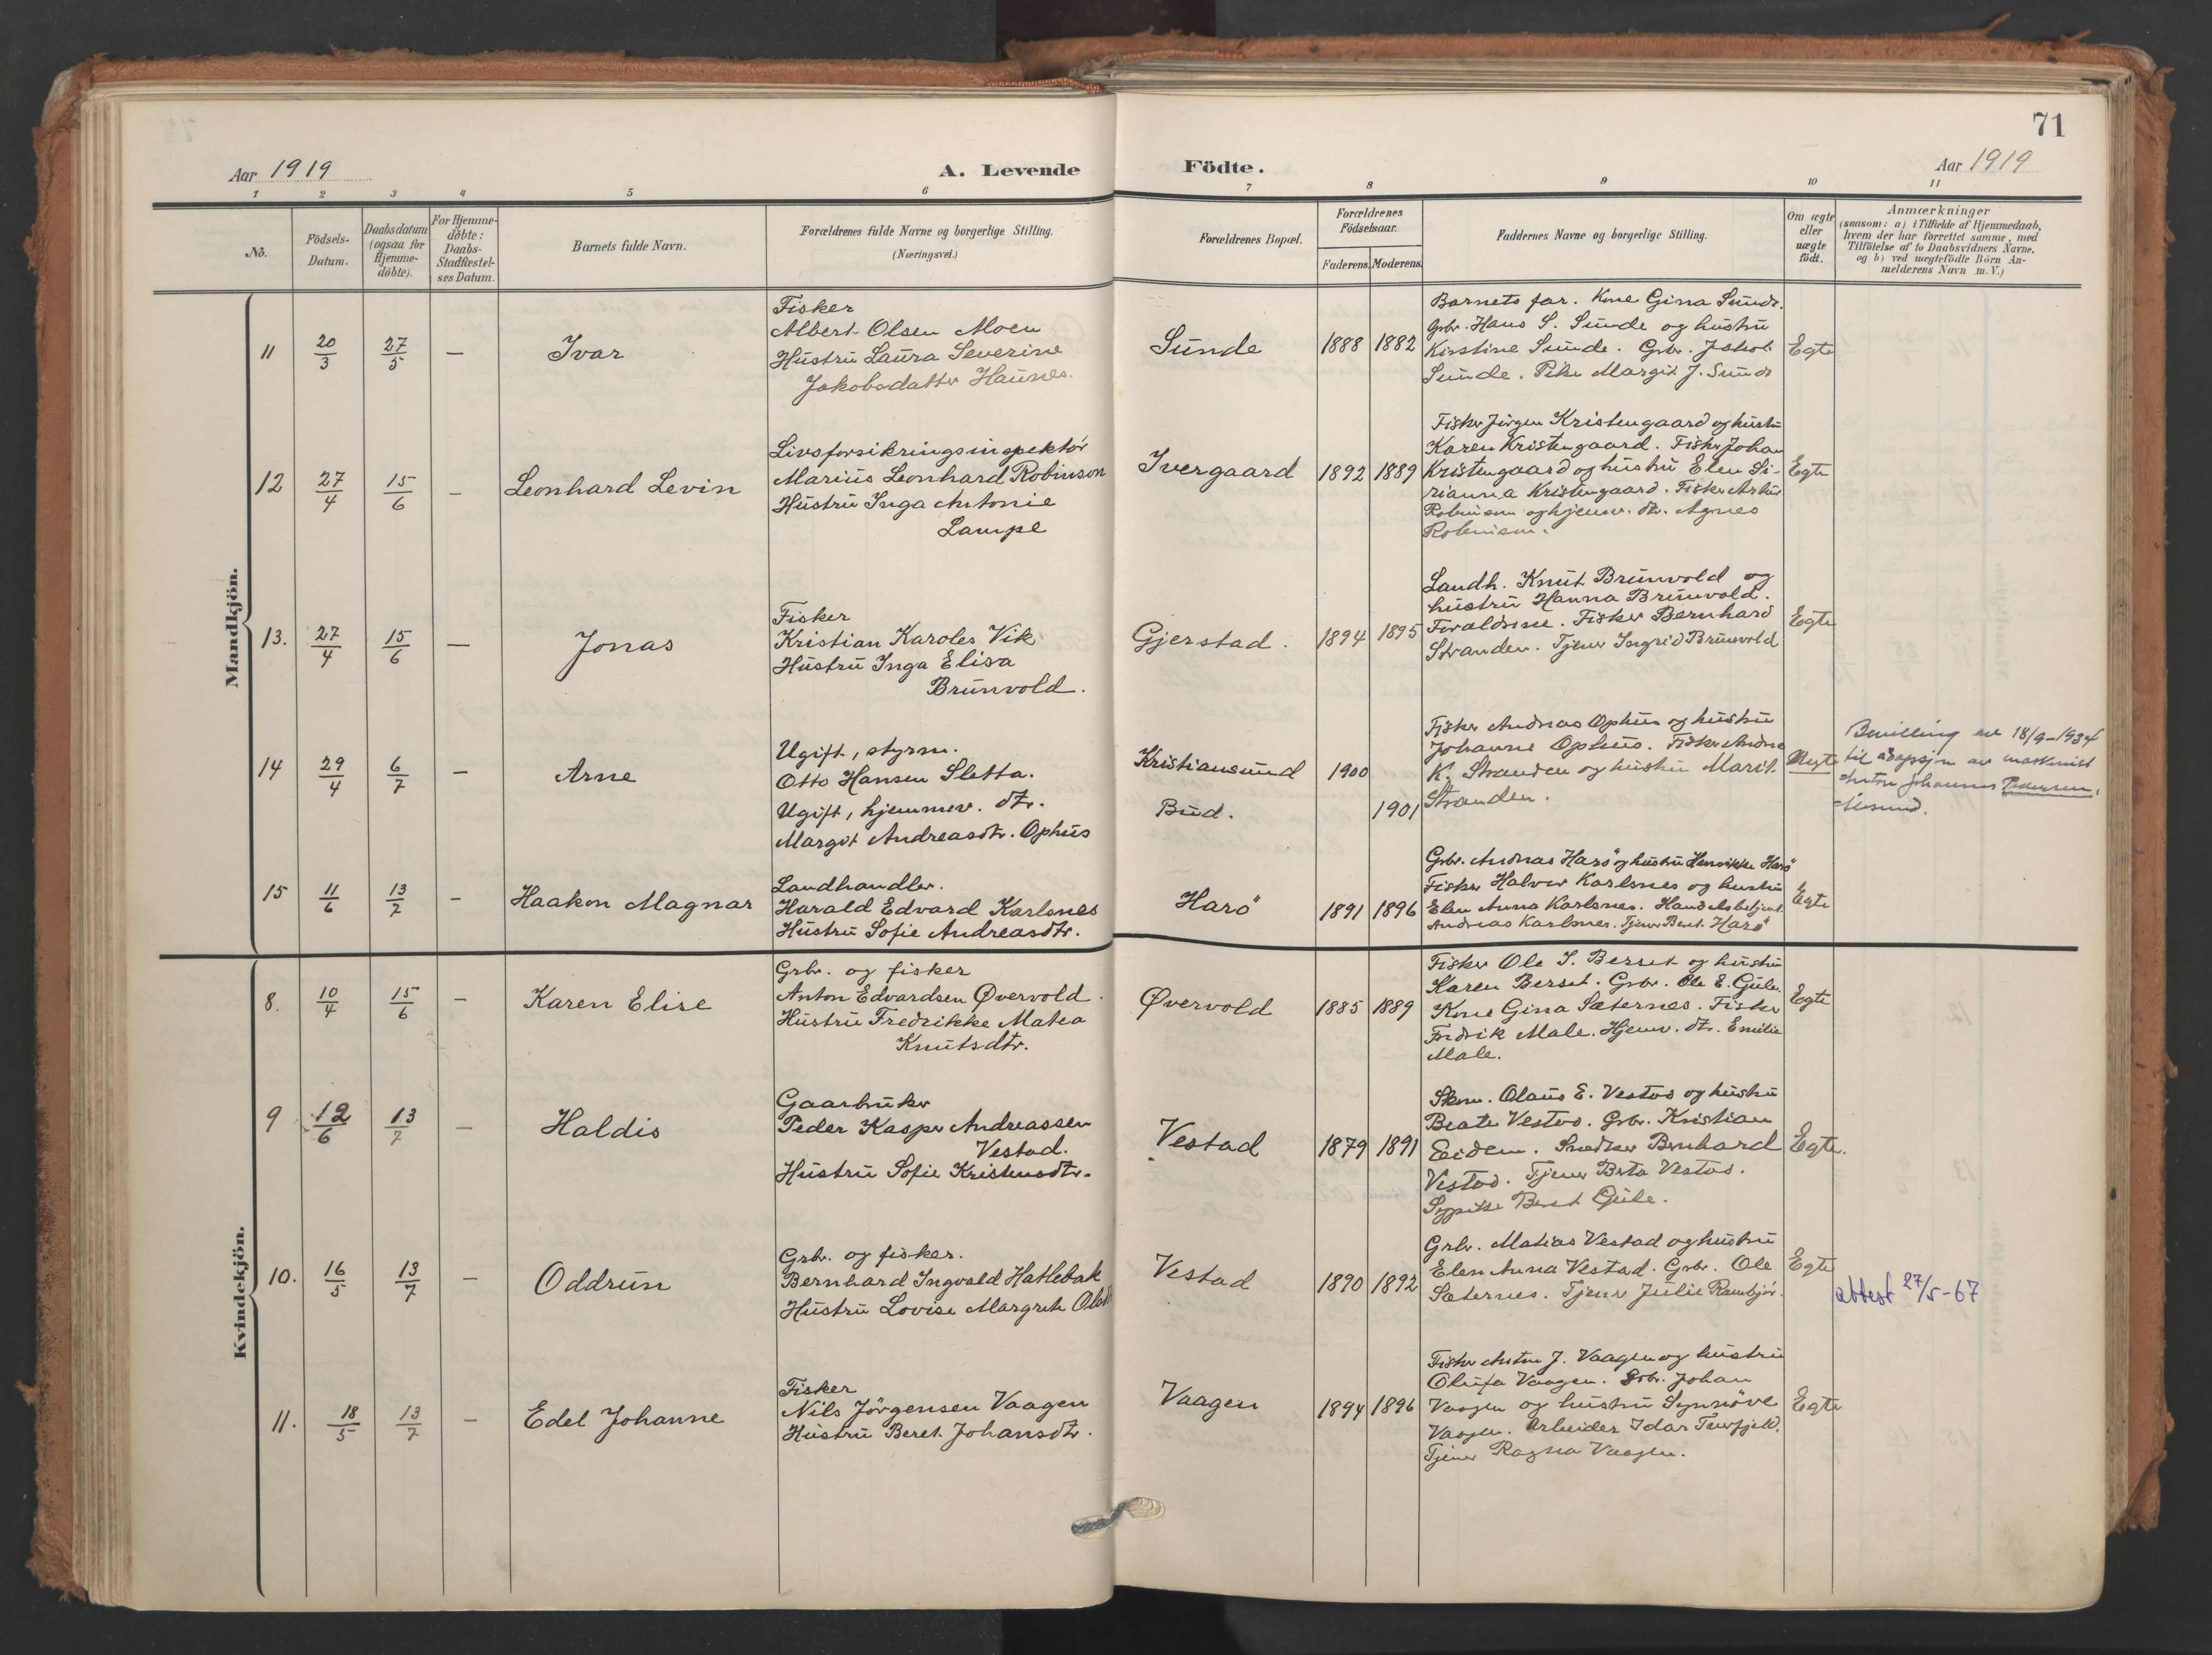 71
Aar 1919
A. Levende Födte.
Aar 1919
1 2 3 4 5 6 7 8 9 10 11
No.
Födsels-
Datum.
Daabsdatum
(ogsaa for
Hjemme-
döbte).
For Hjemme-
döbte:
Daabs-
Stadfæstel-
ses Datum.
Barnets fulde Navn.
Forældrenes fulde Navne og borgerlige Stilling.
(Næringsvei.)
Forældrenes Bopæl.
Forældrenes
Födselsaar.
Faderens. Moderens.
Faddernes Navne og borgerlige Stilling.
Om ægte
eller
uægte
födt.
Anmærkninger
(saasom: a) i Tilfælde af Hjemmedaab,
hvem der har forrettet samme, med
Tilföielse af to Daabsvidners Navne,
og b) ved uægtefödte Börn An-
melderens Navn m. V.)
Mandkjön.
11 20/3 27/5 — Ivar
Fisker
Albert Olsen Moen
Hustru Laura Severine
Jakobsdatter Haunes.
Sunde 1888 1882
Barnets far. Kone Gina Sunde.
Grbr. Hans S. Sunde og hustru
Kirstine Sunde. Grbr. Jakob
Sunde. Pike Margit J. Sunde
Egte
12 27/4 15/6 — Leonhard Levin
Livsforsikringsinspektör
Marius Leonhard Robinson
Hustru Inga Antonie
Lampe
Ivergaard 1892 1889
Fisker Jörgen Kristengaard og hustru
Karen Kristengaard. Fisker Johan
Kristengaard og hustru Elen Si-
rianna Kristengaard. Fisker Artur
Robinson og hjemv. dtr. Agnes
Robinson.
Egte
13. 27/4 15/6 — Jonas
Fisker
Kristian Karoles Vik
Hustru Inga Elisa
Brunvold.
Gjerstad. 1894 1895
Landh. Knut Brunvold og
hustru Hanna Brunvold.
Forældrene. Fisker Bernhard
Stranden. Tjener Ingrid Brunvold
Egte
14 29/4 6/7 — Arne
Ugift, styrm.
Otto Hansen Sletta.
Ugift, hjemmev. dtr.
Margit Andreasdtr. Ophus
Kristiansund 1900
Bud. 1901
Fisker Andreas Ophus og hustru
Johanne Ophus. Fisker Andreas
K. Stranden og hustru Marit
Stranden.
Uegte
Bevilling av 18/9-1934
til adopsjon av maskinist
Anton Johannes
15 11/6 13/7 — Haakon Magnar
Landhandler.
Harald Edvard Karlsnes
Hustru Sofie Andreasdtr.
Harö 1891 1896
Grbr. Andreas Harö og hustru Henrikke Harö
Fisker Halvor Karlsnes og hustru
Elen Anna Karlsnes. Handelsbetjent
Andreas Karlsnes. Tjener Beret Harö
Egte
Kvindekjön.
8. 10/4 15/6 — Karen Elise
Grbr. og fisker
Anton Edvardsen Øvervold.
Hustru Fredrikke Matea
Knutsdtr.
Øvervold 1885 1889
Fisker Ole S. Berset og hustru
Karen Berset. Grbr. Ole E. Gule.
Kone Gina Sæternes. Fisker
Fredrik Male. Hjemv. dtr. Emilie
Male.
Egte
9 12/6 13/7 — Haldis
Gaarbruker
Peder Kasper Andreassen
Vestad.
Hustru Sofie Kristensdtr.
Vestad 1879 1891
Skom. Olaus E. Vestad og hustru
Beate Vestad. Grbr. Kristian
Eidem. Snedker Bernhard
Vestad. Tjener Berta Vestad.
Sypike Beret Gule.
Egte.
10. 16/5 13/7 — Oddrun
Grbr. og fisker.
Bernhard Ingvald Hatlebak
Hustru Lovise Margrete Olsdtr
Vestad 1890 1892
Grbr. Matias Vestad og hustru
Elen Anna Vestad. Grbr. Ole
Sæternes. Tjener Julie Rambjör.
Egte
attest 27/5-67
11. 18/5 13/7 — Edel Johanne
Fisker
Nils Jörgensen Vaagen
Hustru Beret Johansdtr.
Vaagen 1894 1896
Fisker Anton J. Vaagen og hustru
Olufa Vaagen. Grbr. Johan
Vaagen og hustru Synnöve
Vaagen. Arbeider Idar
Tjener Ragna Vaagen.
Egte